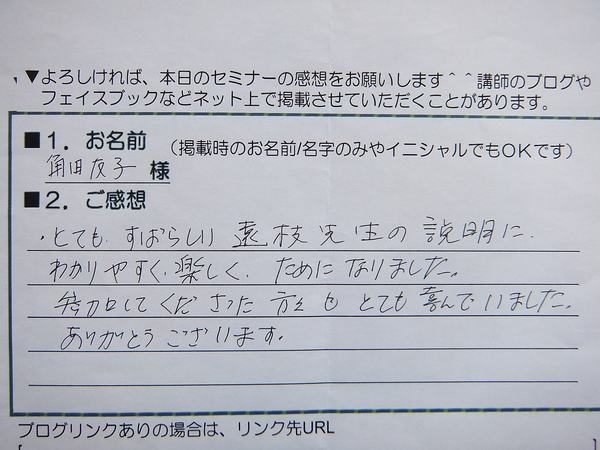 ▼よろしければ、本日のセミナーの感想をお願いします＾＾講師のブログや
フェイスブックなどネット上で掲載させていただくことがあります。
■１．お名前 （掲載時のお名前/名字のみやイニシャルでもOKです）
角田友子 様
■２．ご感想
・とても すばらしい 遠枝先生の説明に
わかりやすく、楽しく、ためになりました。
参加してくださった方々もとても喜んでいました。
ありがとうございます。
ブログリンクありの場合は、リンク先URL
[ ]